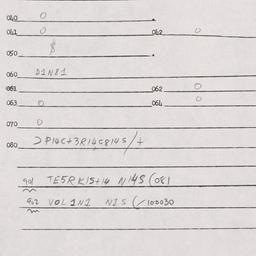 040 0
041 0 042 0
050 $
060 D1N81
061 062 0
063 0 064 0
070 0
080 >P14C+3R14C8145/+
901 TE5RK15+14 N145(081
902 VOL1N1 N15(/100030